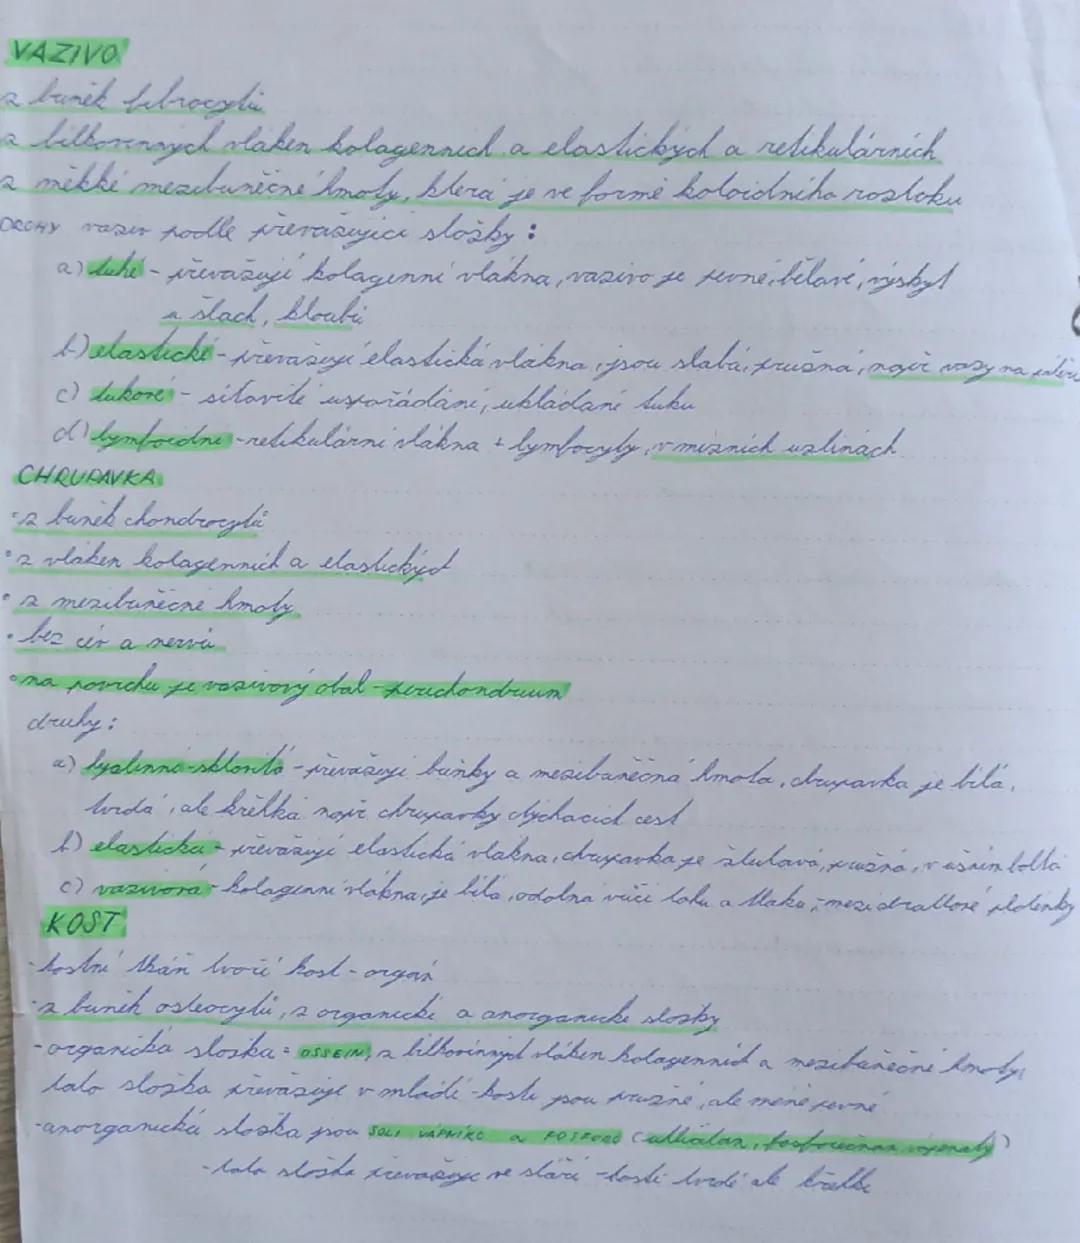 VAZIVO
z buněk fibrocytů
z bílkovinných vláken kolagenních a elastických a retikulárních
z měkké mezibuněčné hmoty, která je ve formě koloidního roztoku
DRUHY vaziv podle převažující složky:
a) tuhé - převažují kolagenní vlákna, vazivo je pevné, bělavé, výskyt
a šlach, kloubů
b) elastické - převažují elastická vlákna, jsou slabá, pružná, např vazy na páteři
c) tukové - síťovité uspořádání, ukládání tuku
d) lymfoidní - retikulární vlákna + lymfocyty, v mízních uzlinách
CHRUPAVKA
• z buněk chondrocytů
• z vláken kolagenních a elastických
• z mezibuněčné hmoty
• bez cév a nervů
• na povrchu je vazivový obal - perichondrium
druhy:
a) hyalinní - sklovitá - převažují buňky a mezibuněčná hmota, chrupavka je bílá,
tvrdá, ale křehká např. chrupavky dýchacích cest
b) elastická - převažují elastická vlákna, chrupavka je žlutavá, pružná, v ušním boltci
c) vazivová - kolagenní vlákna, je bílá, odolná vůči tahu a tlaku, meziobratlové ploténky
KOST
- kostní tkáň tvoří kost - orgán
- z buněk osteocytů, z organické a anorganické složky
- organická složka = OSSEIN, z bílkovinných vláken kolagenních a mezibuněčné hmoty,
tato složka převažuje v mládí - kosti jsou pružné, ale méně pevné
- anorganická složka jsou SOLI VÁPNÍKU a FOSFORU (uhličitan, fosforečnan vápenatý)
- tato složka převažuje ve stáří - kosti tvrdé ale křehké